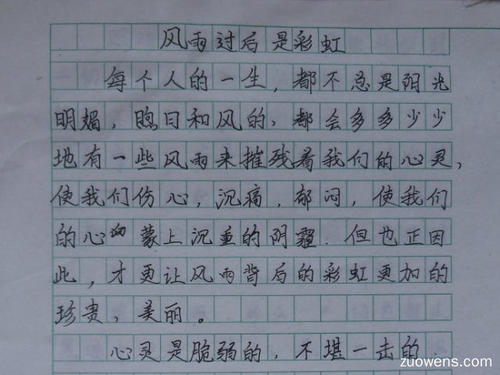 风雨过后是彩虹
每个人的一生，都不总是阳光
明媚，煦日和风的，都会多多少少
地有一些风雨来摧残着我们的心灵，
使我们伤心，沉痛，郁闷，使我们
的心的蒙上沉重的阴霾。但也正因
此，才更让风雨背后的彩虹更加的
珍贵、美丽。
心灵是脆弱的，不堪一击的
zuowens.com